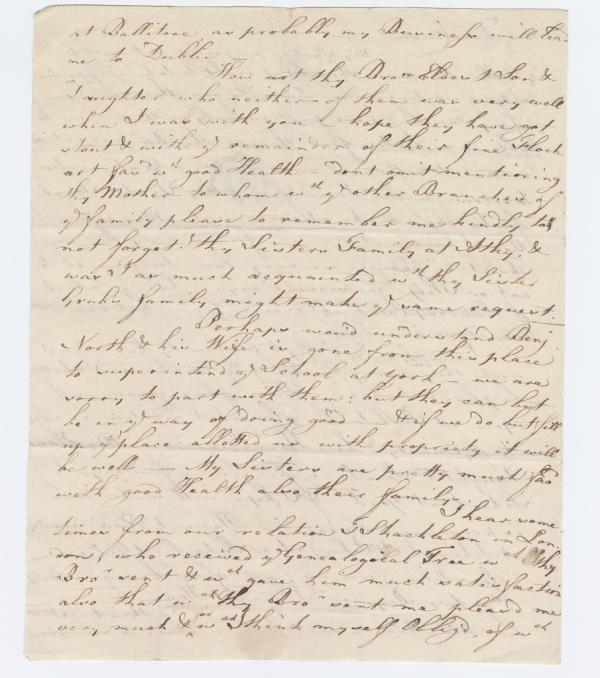 at Ballitore, as probably my Business will lead
me to Dublin.
How art thy Bror. Eldest Son &
Daughter who neither of them was very well
when I was with you - hope they have got
stout & with ye remainder of their fine Flock
art favd. wth good Health - dont omit mentioning
thy Mother to whom wth ye other Branches of
ye family please to remember me kindly to,
not forgetg. thy Sisters Family at Athy; &
was I as much acquainted wth thy Sister
Grubs family might make ye same request.
Perhaps woud understand Benj.
North & his Wife is gone from this place
to superintend ye School at York - we are
sorry to part with them; but they can but
be in ye way of doing good - & if we do but fill
up ye place allotted us with propriety it will
be well - My Sisters are pretty much favd
with good Health also their family.
I hear some-
times from our relation Shackleton in Lon-
don, who received ye Genealogical Tree wch thy
Bror sent & wch gave him much satisfaction
also that wch thy Bror sent me pleasd me
very much & for wch I think myself Obligd, of wch